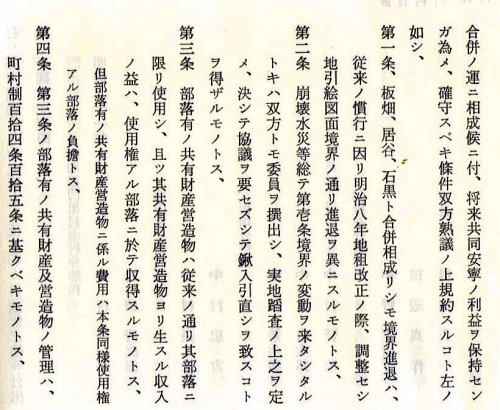 合併ノ運ニ相成候ニ付、将来共同安寧ノ利益ヲ保持セン
ガ為メ、確守スベキ條件双方熟議ノ上規約スルコト左ノ
如シ、
第一条、板畑、居谷、石黒ト合併相成リシモ境界進退ハ、
従来ノ慣行ニ因リ明治八年地租改正ノ際、調整セシ
地引絵図面境界ノ通リ進退ヲ異ニスルモノトス、
第二条 崩壊水災等総テ第壱条境界ノ変動ヲ来タシタル
トキハ双方トモ委員ヲ撰出シ、実地踏査ノ上之ヲ定
メ、決シテ協議ヲ要セズシテ鍬入引直シヲ致スコト
ヲ得ザルモノトス、
第三条 部落有ノ共有財産営造物ハ従来ノ通リ其部落ニ
限リ使用シ、且ツ其共有財産営造物ヨリ生スル収入
ノ益ハ、使用権アル部落ニ於テ収得スルモノトス、
但部落有ノ共有財産営造物ニ係ル費用ハ本条同様使用権
アル部落ノ負擔トス、
第四条 第三条ノ部落有ノ共有財産及営造物ノ管理ハ、
町村制百拾四条百拾五条ニ基クベキモノトス、